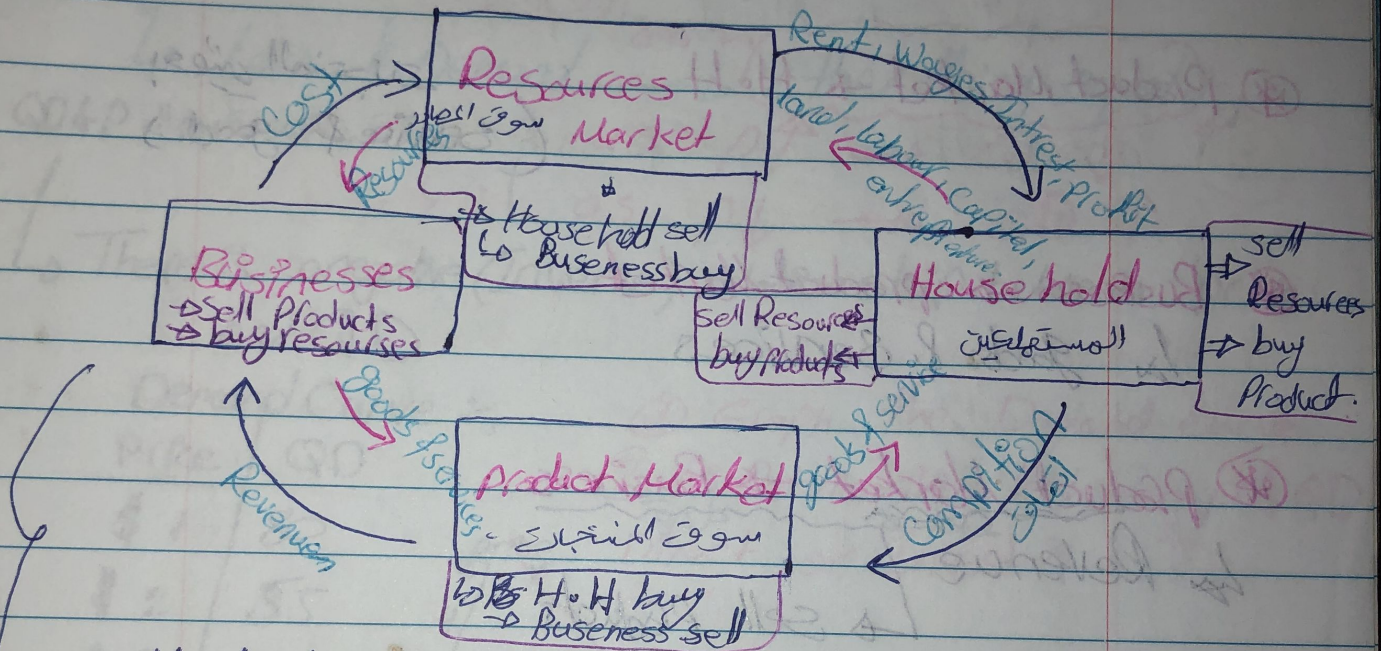 Resources
سوق
Market
Cost
Resources
Rent, Wages, Intrest, Profit
land, Labour, Capital,
Household sell
Buseness buy
Businesses
sell Products
buy resourses
sell Resources
buy Products
Household
المستهلكين
sell
Resources
buy
Product.
goods & services
Revenues
Product Market
سوق المنتجات
goods & service
H.H buy
Buseness sell